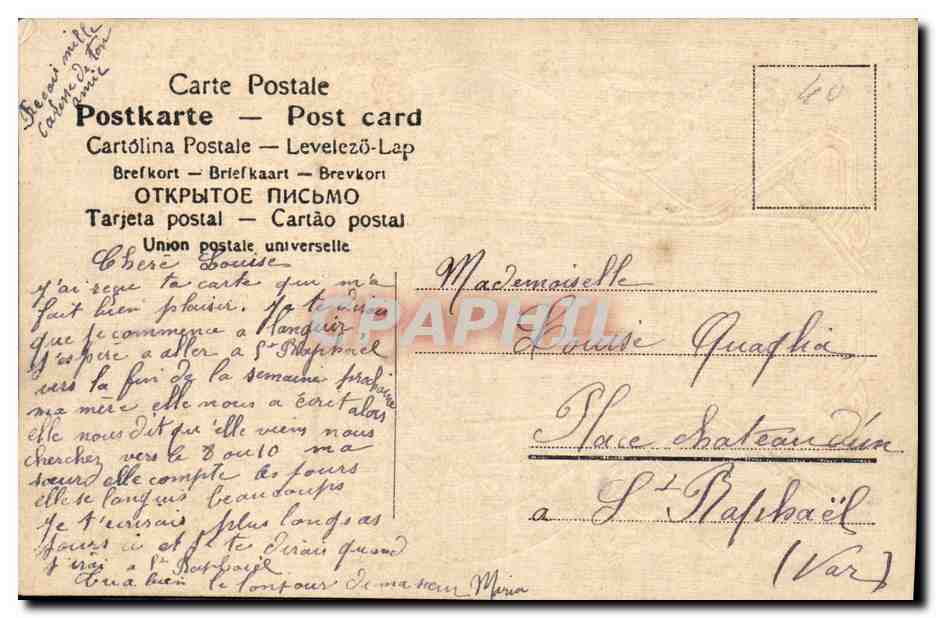 Recoit mille
caresse de ton
amie
Carte Postale
Postkarte — Post card
Cartólina Postale — Levelező-Lap
Brefkort — Briefkaart — Brevkort
ОТКРЫТОЕ ПИСЬМО
Tarjeta postal — Cartão postal
Union postale universelle
40
Cheré Louise
J'ai reçue ta carte qui m'a
fait bien plaisir. Je te dirais
que je commence a languir
J'espere a aller à St Raphaël
vers la fin de la semaine prochaine
ma mère elle nous a écrit alors
elle nous dit qu'elle viens nous
cherchez vers le 8 ou 10 ma
sœur elle compte les jours
elle se languis beaucoups
Je t'écrirais plus longs as
jours ci et Je te dirais quand
J'irai a St Raphaël
bien le bonjour de ma sœur Miria
Mademoiselle
Louise Quaglia
Place chateaudun
a St Raphaël
(Var)
CPAPHIL